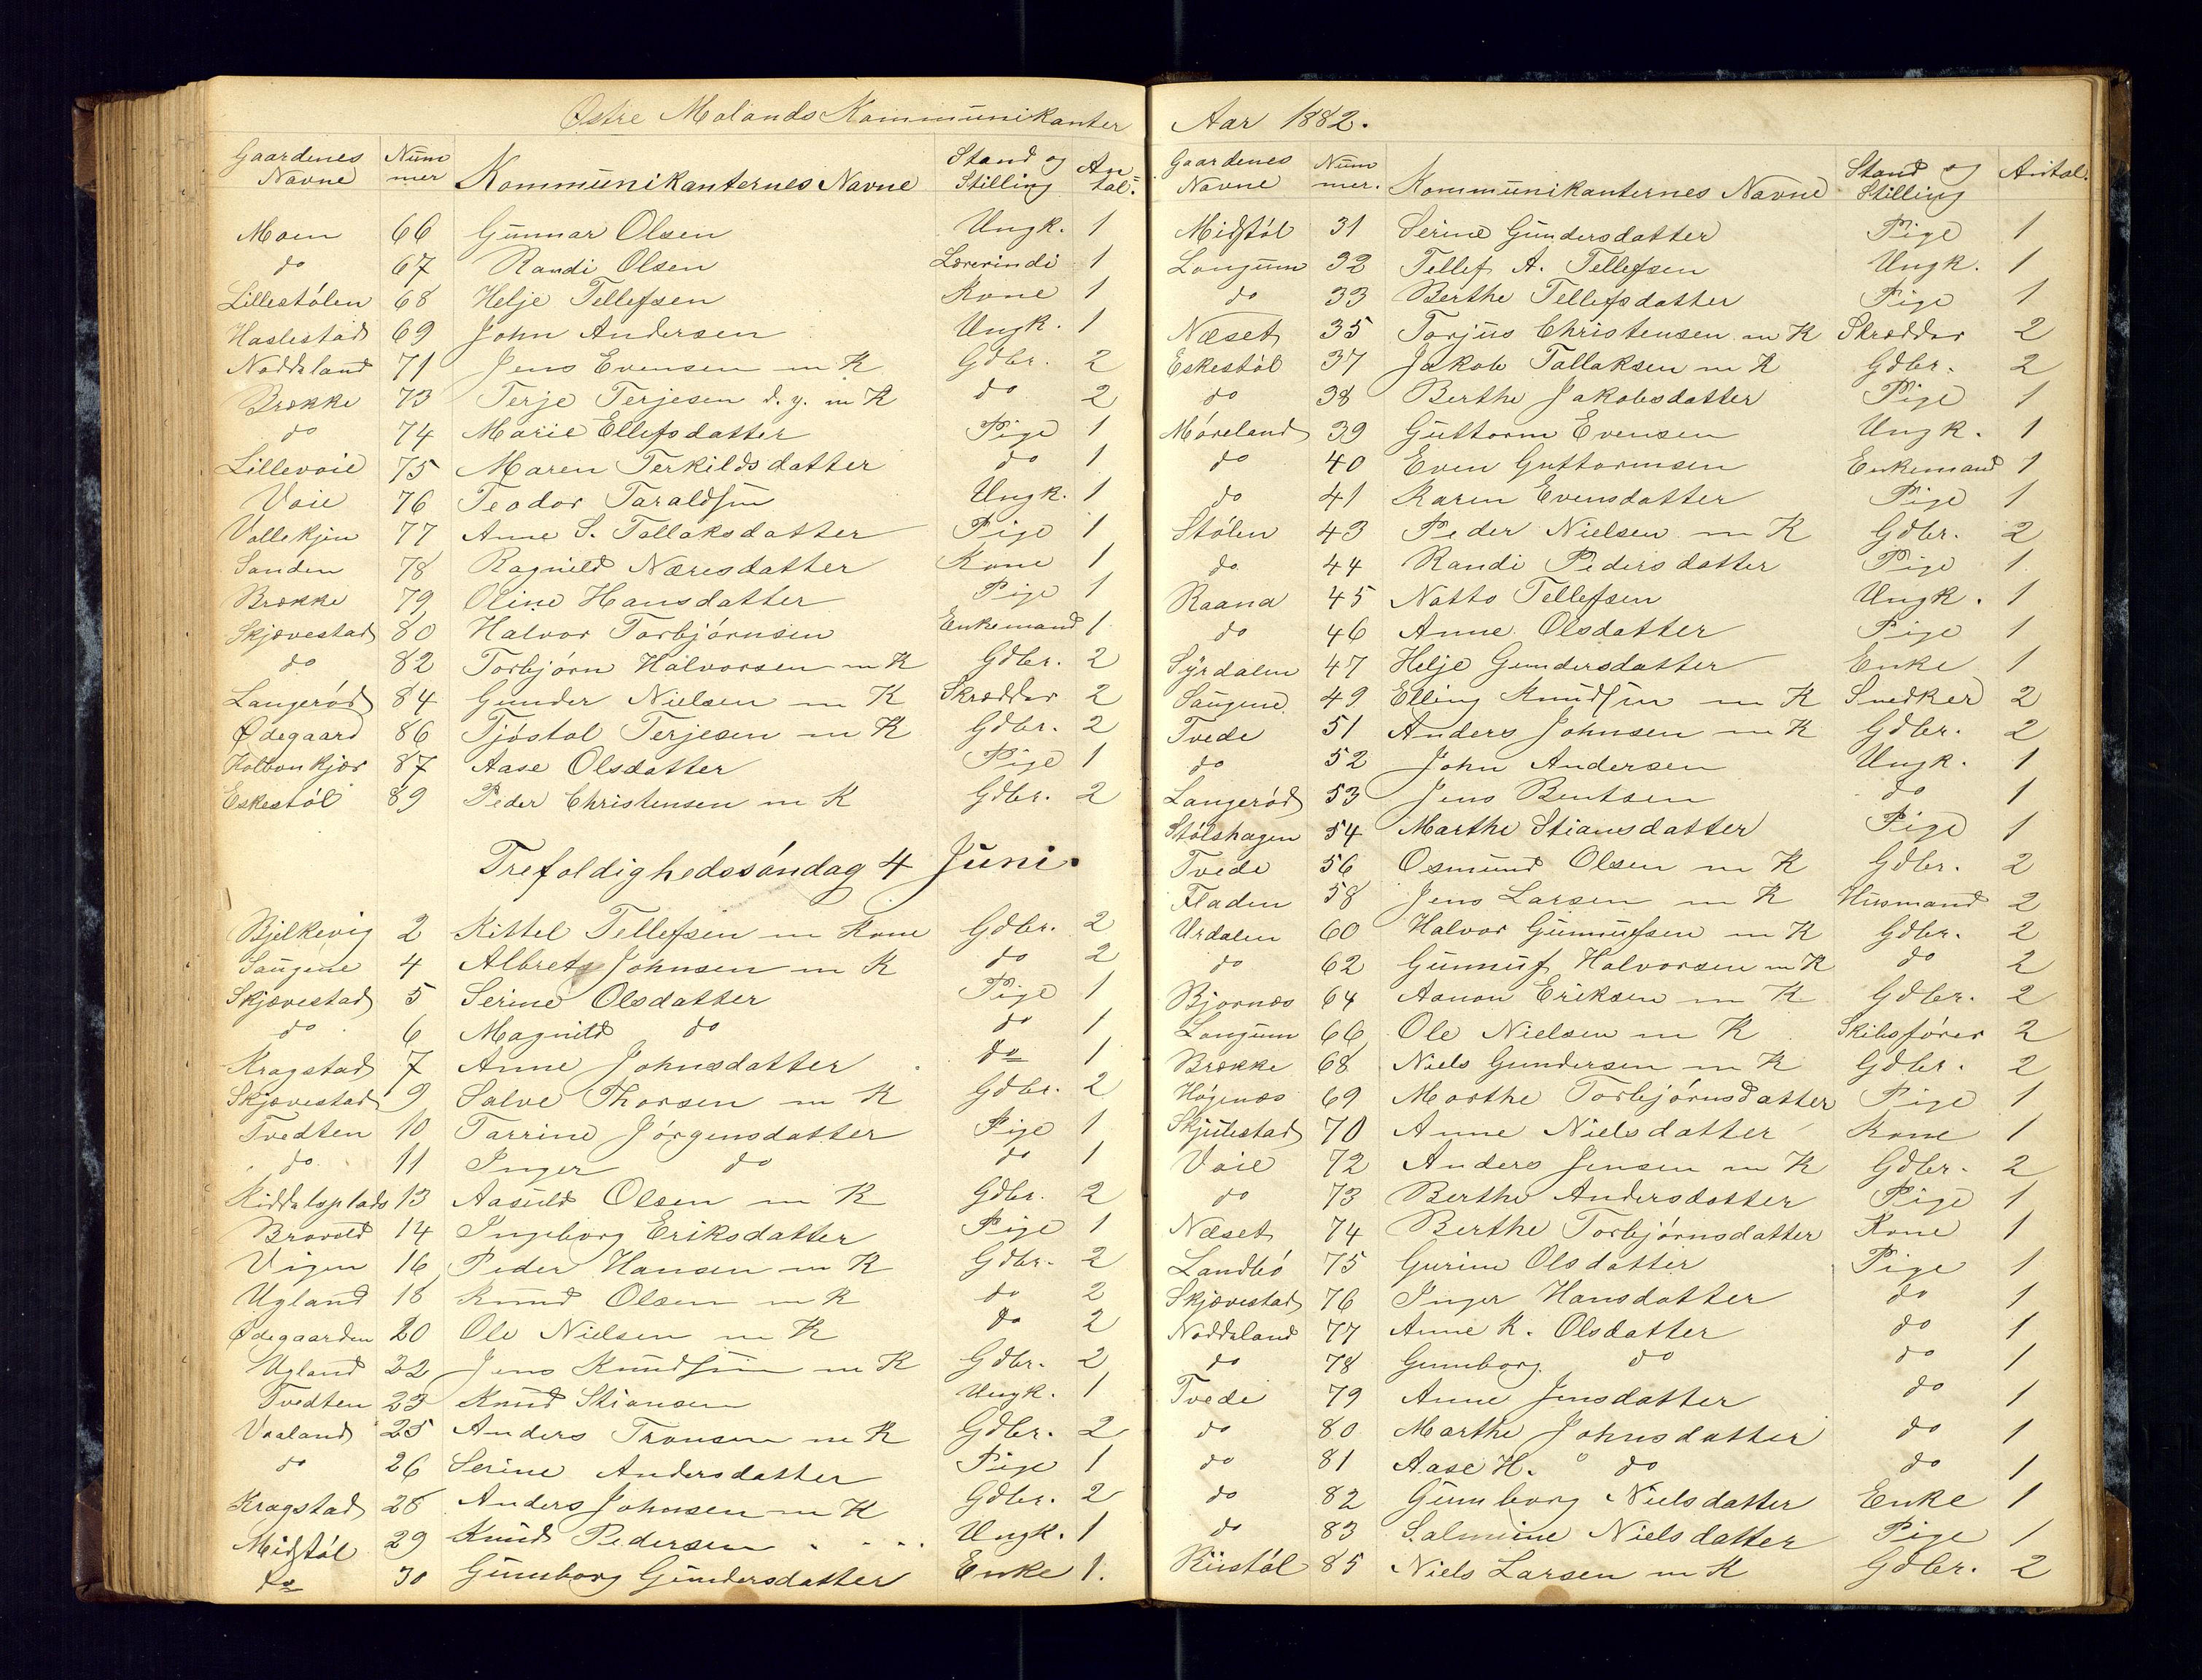 Østre Molands Kommunikanter
Gaardenes Navne Nummer Kommunikanternes Navne Stand og Stilling Antal.
Moen 66 Gunnar Olsen Ungk. 1
do 67 Randi Olsen Lærerindi 1
Lillestólen 68 Helje Tellefsen Kone 1
Haslestad 69 John Andersen Ungk. 1
Noddeland 71 Jens Evensen m K Gdbr. 2
Brække 73 Terje Terjesen d. y. m K do 2
do 74 Marie Ellefsdatter Pige 1
Lillevaie 75 Maren Terkildsdatter do 1
Vaie 76 Teodor Taraldsen Ungk. 1
Vallekjen 77 Anne S. Tallaksdatter Pige 1
Sanden 78 Ragnild Næresdatter Kone 1
Brække 79 Oline Hansdatter Pige 1
Skjævestad 80 Halvor Torbjórnsen Enkemand 1
do 82 Torbjórn Halvorsen m K Gdbr. 2
Langeród 84 Gunder Nielsen m K Skrædder 2
Ødegaard 86 Tjóstol Terjesen m K Gdbr. 2
87 Aase Olsdatter Pige 1
Eskestól 89 Peder Christensen m K Gdbr. 2
Trefoldighedssóndag 4 Juni.
Bjelkevig 2 Kittel Tellefsen m Kone Gdbr. 2
Saugene 4 Albret Johnsen m K do 2
Skjævestad 5 Serine Olsdatter Pige 1
do 6 Magnild do do 1
Kragstad 7 Anne Johnsdatter do 1
Skjævestad 9 Salve Thorsen m K Gdbr. 2
Tvedten 10 Tarrine Jórgensdatter Pige 1
do 11 Inger do do 1
Kiddalsplads 13 Aasuld Olsen m K Gdbr. 2
Bravold 14 Ingeborg Eriksdatter Pige 1
Vigen 16 Peder Hansen m K Gdbr. 2
Ugland 18 Knud Olsen m K do 2
Ødegaarden 20 Ole Nielsen m K do 2
Ugland 22 Jens Knudsen m K Gdbr. 2
Tvedten 23 Knud Stiansen Ungk. 1
Vaaland 25 Anders Tronsen m K Gdbr. 2
do 26 Serine Andersdatter Pige 1
Kragstad 28 Anders Johnsen m K Gdbr. 2
Midtstól 29 Knud Pedersen Ungk. 1
do 30 Gunborg Gundersdatter Enke 1.
Aar 1882.
Gaardenes Navne Nummer. Kommunikanternes Navne Stand og Stilling Antal.
Midtstól 31 Serine Gundersdatter Pige 1
Longum 32 Tellef A. Tellefsen Ungk. 1
do 33 Berthe Tellefsdatter Pige 1
Næset 35 Torjus Christensen m K Skrædder 2
Eskestól 37 Jakob Tallaksen m K Gdbr. 2
do 38 Berthe Jakobsdatter Pige 1
Móreland 39 Guttorm Evensen Ungk. 1
do 40 Even Guttormsen Enkemand 1
do 41 Karen Evensdatter Pige 1
Stólen 43 Peder Nielsen m K Gdbr. 2
do 44 Randi Pedersdatter Pige 1
Raana 45 Natto Tellefsen Ungk. 1
do 46 Anne Olsdatter Pige 1
Syrdalen 47 Helje Gundersdatter Enke 1
Saugene 49 Elling Knudsen m K Snedker 2
Tvede 51 Anders Johnsen m K Gdbr. 2
do 52 John Andersen Ungk. 1
Langeród 53 Jens Bentsen do 1
Stólshagen 54 Marthe Stiansdatter Pige 1
Tvede 56 Osmund Olsen m K Gdbr. 2
Fladen 58 Jens Larsen m K Husmand 2
Urdalen 60 Halvor Gunnufsen m K Gdbr. 2
do 62 Gunnuf Halvorsen m K do 2
Bjornæs 64 Aanon Eriksen m K Gdbr. 2
Longum 66 Ole Nielsen m K Skibsfórer 2
Brække 68 Niels Gundersen m K Gdbr. 2
Hógenæs 69 Marthe Torbjórnsdatter Pige 1
Skjulestad 70 Anne Nielsdatter Kone 1
Vaie 72 Anders Jensen m K Gdbr. 2
do 73 Berthe Andersdatter Pige 1
Næset 74 Berthe Torbjórnsdatter Kone 1
Landbó 75 Gurine Olsdatter Pige 1
Skjævestad 76 Inger Hansdatter do 1
Noddeland 77 Anne K. Olsdatter do 1
do 78 Gunborg do do 1
Tvede 79 Anne Jensdatter do 1
do 80 Marthe Johnsdatter do 1
do 81 Aase H. " do do 1
do 82 Gunborg Nielsdatter Enke 1
do 83 Salmine Nielsdatter Pige 1
Riistól 85 Niels Larsen m K Gdbr. 2